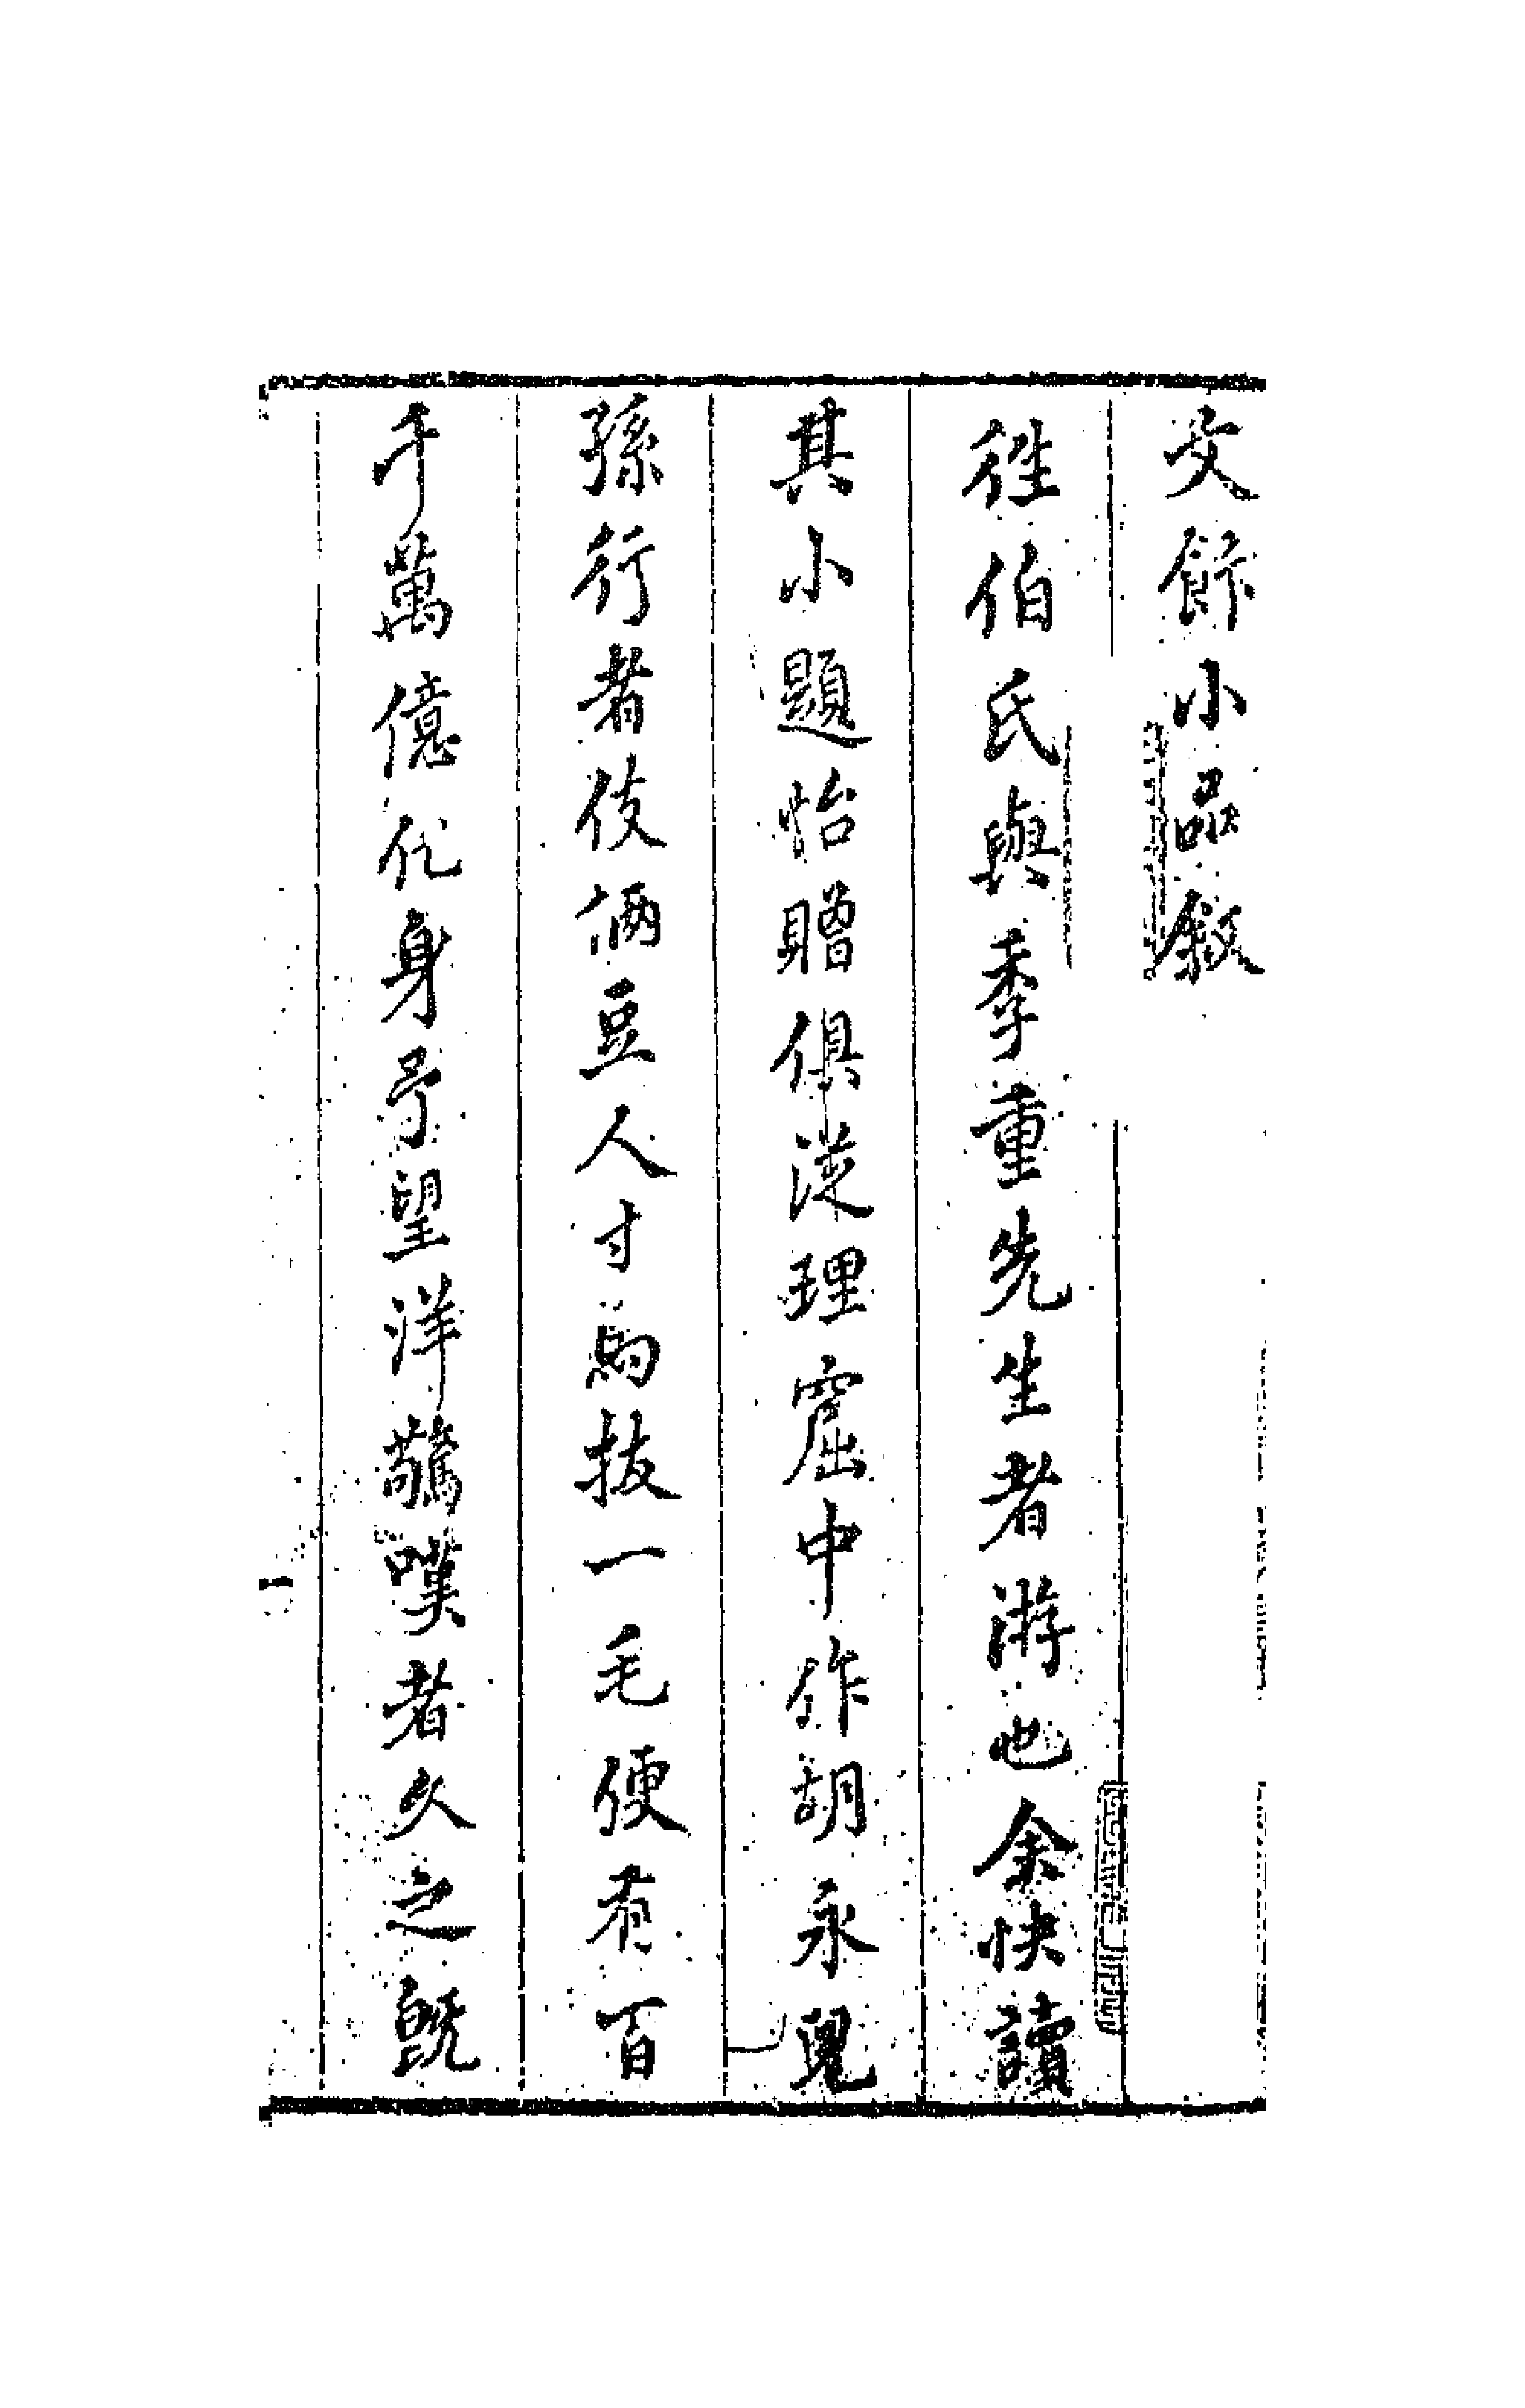 文餘小品敘
徃伯氏與季重先生者游也余快讀
其小題怡贈俱從理窟中作胡永兒
孫行者伎倆豆人寸馬拔一毛便有百
千萬億化身予望洋驚嘆者久之旣
一